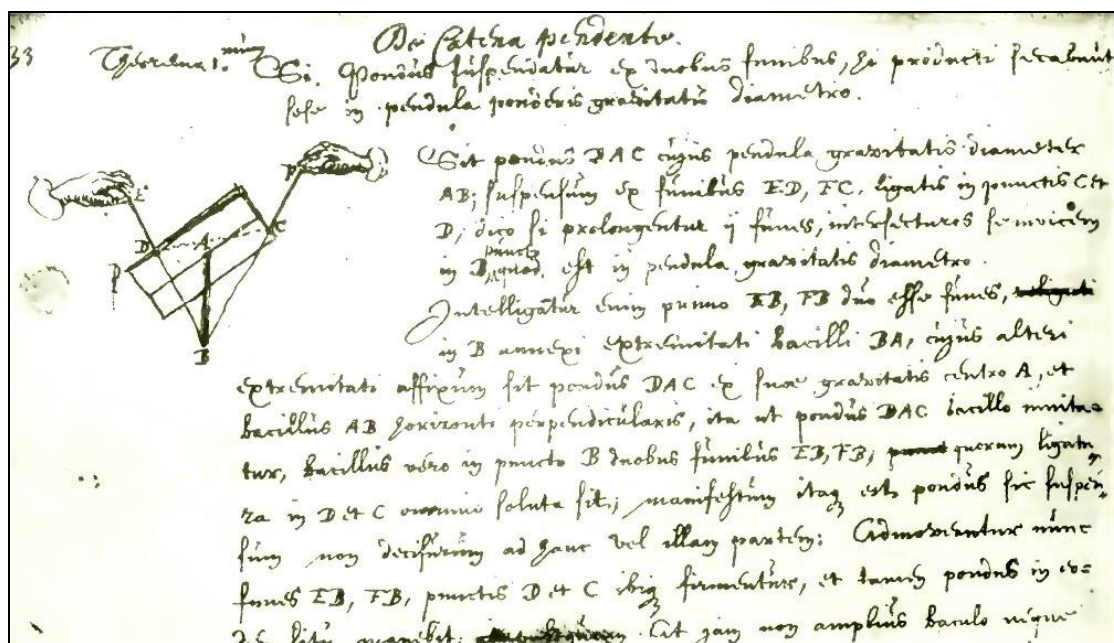 De Catena pendente.
33 Theorema 1.mum Si Pondus suspendatur ex duobus funibus, hi producti secabunt
sese in pendula ponderis gravitatis diametro.
Sit pondus DAC cujus pendula gravitatis diameter
AB; suspensum ex funibus ED, FC, ligatis in punctis C et
D; dico si prolongentur ij funes, intersecturos se invicem
in B, puncto quod est in pendula gravitatis diametro.
Intelligantur enim primo EB, FB duo esse funes,
in B annexi extremitati bacilli BA, cujus alteri
extremitati affixum sit pondus DAC ex suae gravitatis centro A, et
bacillus AB horizonti perpendicularis, ita ut pondus DAC bacillo innita-
tur, bacillus vero in puncto B duobus funibus EB, FB; quorum ligatu-
ra in D et C omnino soluta sit; manifestum itaq est, pondus sic suspen-
sum non decisurum ad hanc vel illam partem: Admoventur nunc
funes EB, FB, punctis D et C ibiq firmentur, et tamen pondus in eo-
situ manebit; At jam non amplius baculo
E
F
D
A
C
P
B